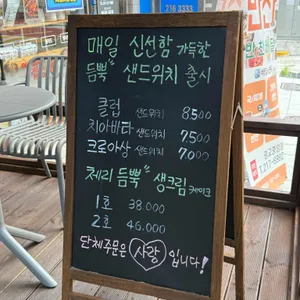 216.3333
매일 신선함 가득한
듬뿍 샌드위치 출시
클럽 샌드위치 8,500
치아바타 샌드위치 7,500
크로아상 샌드위치 7,000
체리 듬뿍 생크림 케이크
1호 38.000
2호 46.000
단체주문은 사랑입니다!